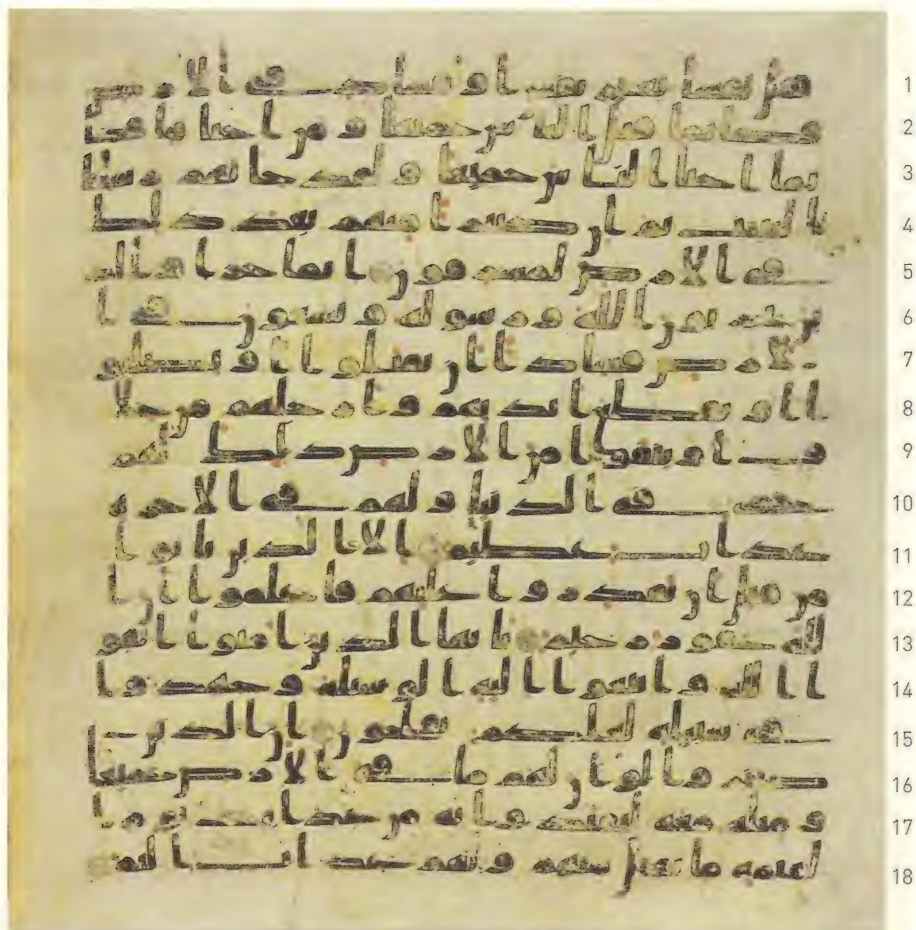 قتل نفسا بغير نفس او فساد في الارض 1
فكانما قتل الناس جميعا ومن احياها فكا 2
نما احيا الناس جميعا ولقد جاتهم رسلنا 3
بالبينت ثم ان كثيرا منهم بعد ذلك 4
في الارض لمسرفون انما جزوا الذ 5
ين يحاربون الله ورسوله ويسعون في ا 6
لارض فسادا ان يقتلوا او يصلبو 7
ا او تقطع ايديهم وارجلهم من خلا 8
ف او ينفوا من الارض ذلك لهم 9
خزي في الدنيا ولهم في الاخرة 10
عذاب عظيم الا الذين تابوا 11
من قبل ان تقدروا عليهم فاعلموا ان ا 12
لله غفور رحيم يايها الذين امنوا اتقو 13
ا الله وابتغوا اليه الوسيلة وجهدوا 14
في سبيله لعلكم تفلحون ان الذين 15
كفروا لو ان لهم ما في الارض جميعا 16
ومثله معه ليفتدوا به من عذاب يوم ا 17
لقيمه ما تقبل منهم ولهم عذاب اليم 18